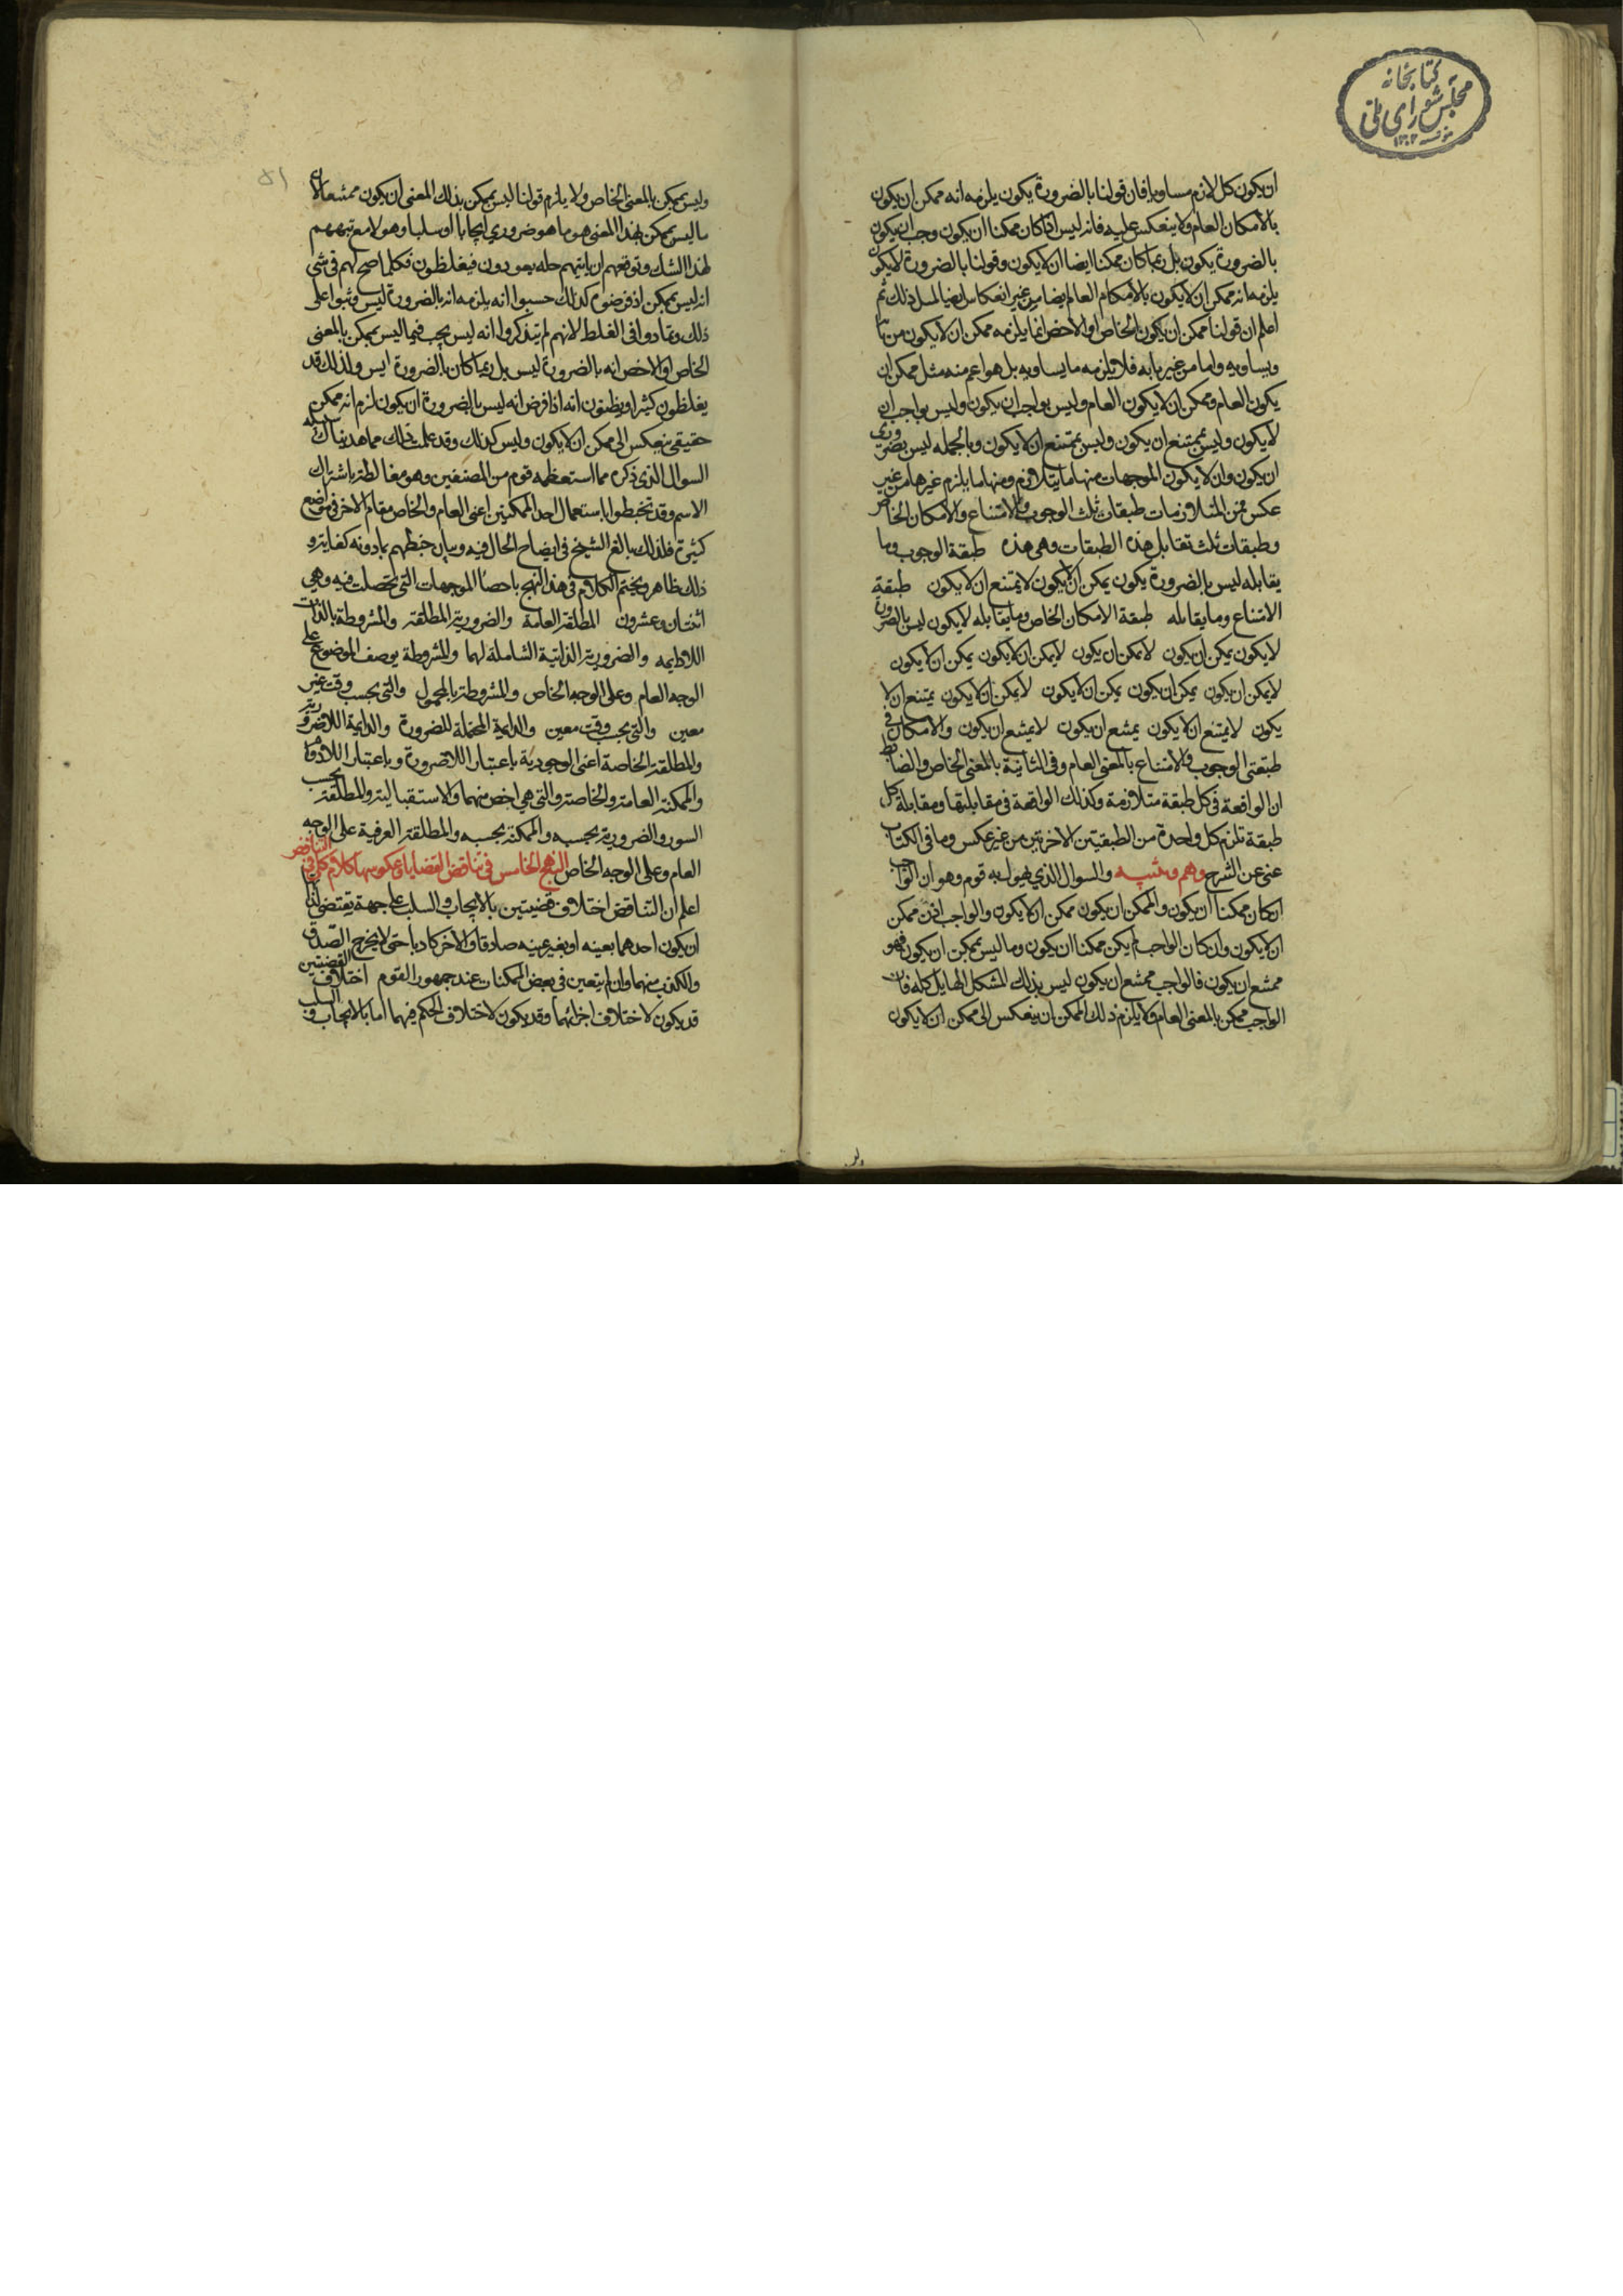 كتابخانه
مجلس شورای ملی
ان يكون كل لازم مساويا فان قولنا بالضرورة يكون يلزمه انه ممكن ان يكون
بالامكان العام ولا ينعكس عليه فانه ليس اذا كان ممكنا ان يكون وجب ان يكون
بالضرورة يكون بل ربما كان ممكنا ايضا ان لا يكون وقولنا بالضرورة لا يكون
يلزمه انه ممكن ان لا يكون بالامكان العام ايضا من غير انعكاس ايضا لمثل ذلك ثم
اعلم ان قولنا ممكن ان يكون الخاص او الاخص انما يلزمه ممكن ان لا يكون من بابه
ويساويه واما من غير بابه فلا يلزمه ما يساويه بل هو اعم منه مثل ممكن ان
يكون العام وممكن ان لا يكون العام وليس بواجب ان يكون وليس بواجب ان
لا يكون وليس بممتنع ان يكون وليس بممتنع ان لا يكون وبالجمله ليس بضرورى
ان يكون وان لا يكون الموجهات منها ما يتلازم ومنها ما يلزم غيرها من غير
عكس فمن المتلازمات طبقات ثلث الوجوب والامتناع والامكان الخاص
وطبقات ثلث تقابل هذه الطبقات وهى هذه طبقة الوجوب وما
يقابله ليس بالضرورة يكون يمكن ان لا يكون لا يمتنع ان لا يكون طبقة
الامتناع وما يقابله طبقة الامكان الخاص وما يقابله لا يكون ليس بالضرورة
لا يكون يمكن ان يكون لا يمكن ان يكون لا يمكن ان لا يكون يمكن ان لا يكون
لا يمكن ان يكون يمكن ان يكون يمكن ان لا يكون لا يمكن ان لا يكون يمتنع ان لا
يكون لا يمتنع ان لا يكون يمتنع ان يكون لا يمتنع ان يكون والامكان فى
طبقتى الوجوب والامتناع بالمعنى العام وفى الثانية بالمعنى الخاص والضابط
ان الواقعة فى كل طبقة متلازمة وكذلك الواقعة فى مقابلتها ومقابلة كل
طبقة تلزم كل واحدة من الطبقيتن الاخرتين من غير عكس وما فى الكتاب
غنى عن الشرح وهم وتنبيه والسوال الذي يهول به قوم وهو ان الواجب
ان كان ممكنا ان يكون والممكن ان يكون ممكن ان لا يكون والواجب اذن ممكن
ان لا يكون وان كان الواجب لم يكن ممكنا ان يكون وما ليس بممكن ان يكون فهو
ممتنع ان يكون فالواجب ممتنع ان يكون ليس بذلك المشكل الهايل كله فان
الواجب ممكن بالمعنى العام ولا يلزم ذلك الممكن ان ينعكس الى ممكن ان لا يكون
٥١
وليس بممكن بالمعنى الخاص ولا يلزم قولنا ليس بممكن بذلك المعنى ان يكون ممتنعا لان
ما ليس بممكن بهذا المعنى هو ما هو ضروري ايجابا او سلبا وهولا مع تنبههم
لهذا الشك وتوقعهم ان ياتيهم حله يعودون فيغلطون فكلما صح لهم فى شى
انه ليس بممكن اذ فرضوه كذلك حسبوا انه يلزمه انه بالضرورة ليس وبنوا على
ذلك وتمادوا فى الغلط لانهم لم يتذكروا انه ليس يجب فيما ليس بممكن بالمعنى
الخاص او الاخص انه بالضرورة ليس بل ربما كان بالضرورة ايس ولذلك قد
يغلطون كثيرا ويظنون انه اذا فرض انه ليس بالضرورة ان يكون لزم انه ممكن
حقيقى ينعكس الى ممكن ان لا يكون وليس كذلك وقد علمت ذلك مما هديناك سبيله
السوال الذى ذكره مما استعظمه قوم من المصنفين وهو مغالطة باشتراك
الاسم وقد تخبطوا باستعمال احد الممكنين اعنى العام والخاص مقام الاخر فى مواضع
كثيرة فلذلك بالغ الشيخ فى ايضاح الحال فيه وبيان خبطهم بما دونه كفاية و
ذلك ظاهر ويختم الكلام فى هذا النهج باحصا الموجهات التى تحصلت فيه وهي
اثنتان وعشرون المطلقة العامة والضرورية المطلقة والمشروطة بالذات
اللادايمه والضرورية الذاتية الشاملة لهما والمشروطة بوصف الموضوع على
الوجه العام وعلى الوجه الخاص والمشروطة بالمحمول والتى بحسب وقت غير
معين والتى بحسب وقت معين والدايمة المحتملة للضرورة والدايمة اللاضرورية
والمطلقة الخاصة اعنى الوجودية باعتبار اللاضرورة وباعتبار اللادوام
والممكنة العامة والخاصة والتى هي اخص منهما والاستقبالية والمطلقة بحسب
السور والضرورية بحسبه والممكنة بحسبه والمطلقة العرفية على الوجه
العام وعلى الوجه الخاص النهج الخامس فى تناقض القضايا وعكوسها كلام كلى فى التناقض
اعلم ان التناقض اختلاف قضيتين بالايجاب والسلب على جهة يقتضى لذاتها
ان يكون احدهما بعينه او بغير عينه صادقا والاخر كاذبا حتى لا يخرج الصدق
والكذب منهما وان لم يتعين فى بعض الممكنات عند جمهور القوم اختلاف القضيتين
قد يكون لاختلاف اجزائهما وقد يكون لاختلاف الحكم فيهما اما بالايجاب والسلب